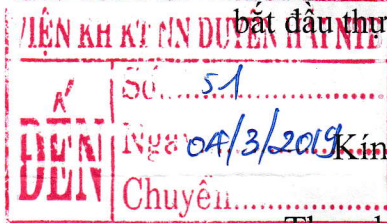 bắt đầu thự
VIỆN KH KT NN DUYÊN HẢI
ĐẾN
Số: 51
Ngày 04/3/2019
Kín
Chuyển